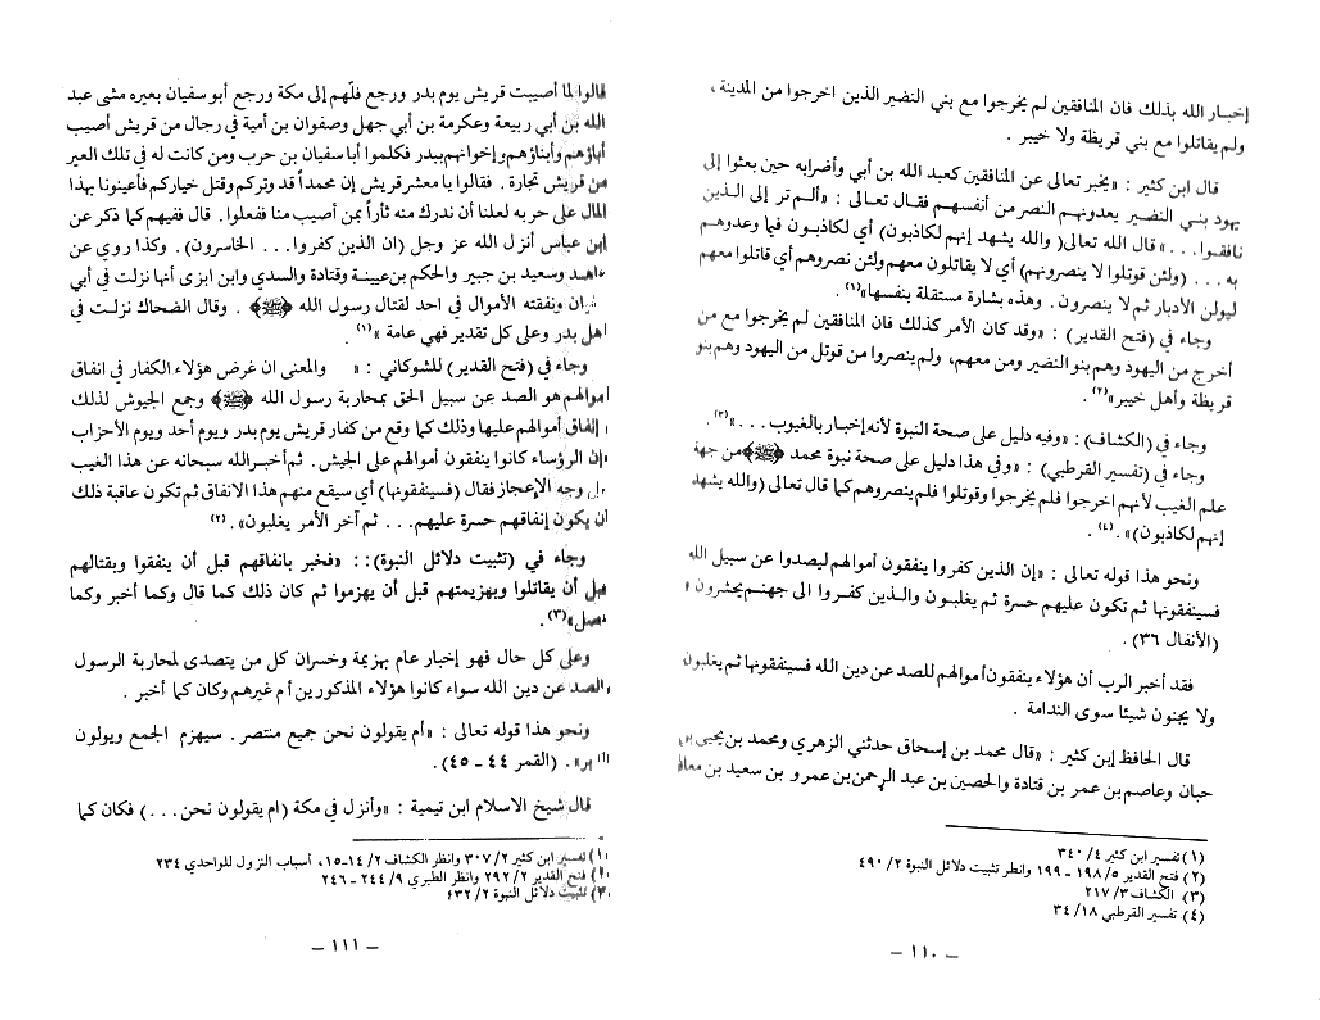 إخبار الله بذلك فان المنافقين لم يخرجوا مع بني النضير الذين اخرجوا من المدينة ،
ولم يقاتلوا مع بني قريظة ولا خيبر .
قال ابن كثير : «يخبر تعالى عن المنافقين كعبد الله بن أبي وأضرابه حين بعثوا إلى
يهود بني النضير يعدونهم النصر من أنفسهم فقال تعالى : «ألم تر إلى الذين
نافقوا . . .» قال الله تعالى( والله يشهد إنهم لكاذبون) أي لكاذبون فيما وعدوهم
به . . . (ولئن قوتلوا لا ينصرونهم) أي لا يقاتلون معهم ولئن نصروهم أي قاتلوا معهم
ليولن الأدبار ثم لا ينصرون . وهذه بشارة مستقلة بنفسها»(١) .
وجاء في (فتح القدير) : «وقد كان الأمر كذلك فان المنافقين لم يخرجوا مع من
أخرج من اليهود وهم بنو النضير ومن معهم، ولم ينصروا من قوتل من اليهود وهم بنو
قريظة وأهل خيبر»(٢) .
وجاء في (الكشاف) : «وفيه دليل على صحة النبوة لأنه إخبار بالغيوب . . .»(٣) .
وجاء في (تفسير القرطبي) : «وفي هذا دليل على صحة نبوة محمد ﴿ﷺ﴾ من جهة
علم الغيب لأنهم اخرجوا فلم يخرجوا وقوتلوا فلم ينصروهم كما قال تعالى (والله يشهد
إنهم لكاذبون)» .(٤) .
ونحو هذا قوله تعالى : «إن الذين كفروا ينفقون أموالهم ليصدوا عن سبيل الله
فسينفقونها ثم تكون عليهم حسرة ثم يغلبون والذين كفروا الى جهنم يحشرون»
(الأنفال ٣٦) .
فقد أخبر الرب أن هؤلاء ينفقون أموالهم للصد عن دين الله فسينفقونها ثم يغلبون
ولا يجنون شيئا سوى الندامة .
قال الحافظ إبن كثير : «قال محمد بن إسحاق حدثني الزهري ومحمد بن يحيى بن
حبان وعاصم بن عمر بن قتادة والحصين بن عبد الرحمن بن عمرو بن سعيد بن معاذ
(١) تفسير ابن كثير ٤/ ٣٤٠
(٢) فتح القدير ٥/ ١٩٨ - ١٩٩ وانظر تثبيت دلائل النبوة ٢/ ٤٩٠
(٣) الكشاف ٣/ ٢١٧
(٤) تفسير القرطبي ١٨/ ٣٤
- ١١٠ -
قالوا لما أصيبت قريش يوم بدر ورجع فلّهم إلى مكة ورجع أبو سفيان بعيره مشى عبد
الله بن أبي ربيعة وعكرمة بن أبي جهل وصفوان بن أمية في رجال من قريش أصيب
آباؤهم وأبناؤهم وإخوانهم ببدر فكلموا أبا سفيان بن حرب ومن كانت له في تلك العير
من قريش تجارة . فقالوا يا معشر قريش إن محمداً قد وتركم وقتل خياركم فأعينونا بهذا
المال على حربه لعلنا أن ندرك منه ثأراً بمن أصيب منا ففعلوا . قال ففيهم كما ذكر عن
ابن عباس أنزل الله عز وجل (ان الذين كفروا . . . الخاسرون) . وكذا روي عن
مجاهد وسعيد بن جبير والحكم بن عيينة وقتادة والسدي وابن ابزى أنها نزلت في أبي
سفيان ونفقته الأموال في احد لقتال رسول الله ﴿ﷺ﴾ . وقال الضحاك نزلت في
اهل بدر وعلى كل تقدير فهي عامة »(١) .
وجاء في (فتح القدير) للشوكاني : « والمعنى ان غرض هؤلاء الكفار في انفاق
أموالهم هو الصد عن سبيل الحق بمحاربة رسول الله ﴿ﷺ﴾ وجمع الجيوش لذلك
إنفاق أموالهم عليها وذلك كما وقع من كفار قريش يوم بدر ويوم أحد ويوم الأحزاب
فإن الرؤساء كانوا ينفقون أموالهم على الجيش . ثم أخبر الله سبحانه عن هذا الغيب
على وجه الإعجاز فقال (فسينفقونها) أي سيقع منهم هذا الانفاق ثم تكون عاقبة ذلك
أن يكون إنفاقهم حسرة عليهم . . . ثم آخر الأمر يغلبون» .(٢)
وجاء في (تثبيت دلائل النبوة) : : «فخبر بانفاقهم قبل أن ينفقوا وبقتالهم
قبل أن يقاتلوا وبهزيمتهم قبل أن يهزموا ثم كان ذلك كما قال وكما أخبر وكما
فصل»(٣) .
وعلى كل حال فهو إخبار عام بهزيمة وخسران كل من يتصدى لمحاربة الرسول
الصد عن دين الله سواء كانوا هؤلاء المذكورين أم غيرهم وكان كما أخبر .
ونحو هذا قوله تعالى : «أم يقولون نحن جميع منتصر . سيهزم الجمع ويولون
الدبر» . (القمر ٤٤ - ٤٥) .
قال شيخ الاسلام ابن تيمية : «وأنزل في مكة (ام يقولون نحن . . .) فكان كما
(١) تفسير ابن كثير ٢/ ٣٠٧ وانظر الكشاف ٢/ ١٤-١٥، أسباب النزول للواحدي ٢٣٤
(٢) فتح القدير ٢/ ٢٩٢ وانظر الطبري ٩/ ٢٤٤ - ٢٤٦
(٣) تثبيت دلائل النبوة ٢/ ٤٣٢
- ١١١ -